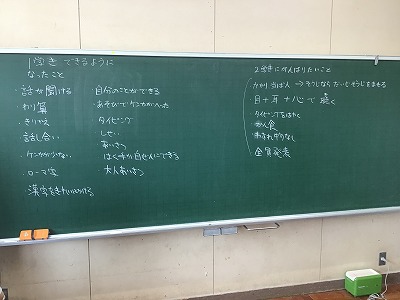 1学き できるように
なったこと
・話が聞ける
・わり算
・きりかえ
・話し合い
・ケンカが少ない
・ローマ字
・漢字をきれいにかける
・自分のことができる
・あそびでケンカがへった
タイピング
しせい
あいさつ
はく手が自ぜんにできる
大人あいさつ
2学きにがんばりたいこと
・かかり 当ばん →そうじなら だいじそうじをおわる
・目+耳+心で聴く
・タイピングをはやく
・かん食
・わすれものなし
・全員発表